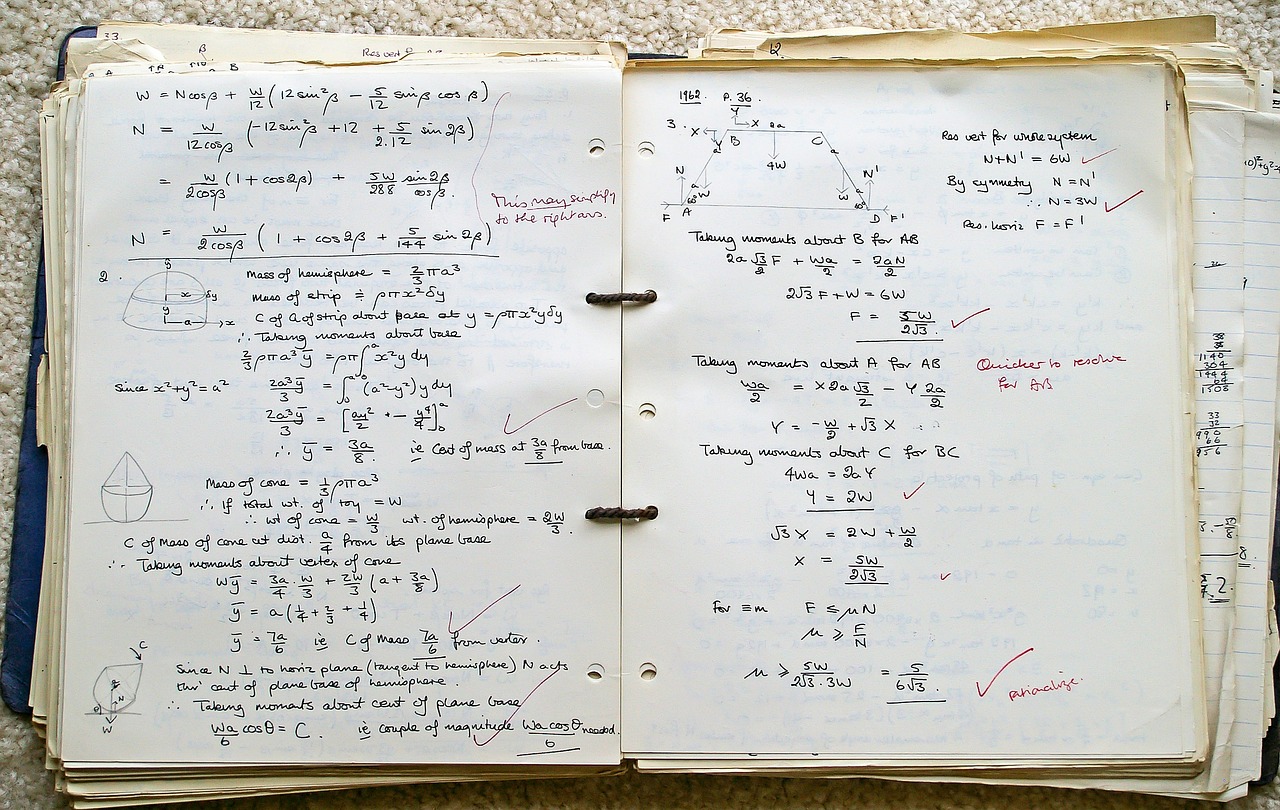 33.
β
Res vert
B
W = Ncosβ + W/12 (12sin²β − 5/12 sinβ cosβ)
N = W/12cosβ (−12sin²β + 12 + 5/2.12 sin2β)
= W/2cosβ (1 + cos2β) + 5W/288 sin2β/cosβ.
This may simplify
to the right ans.
N = W/2cosβ (1 + cos2β + 5/144 sin2β)
2.
y
x δy
y
a x
Mass of hemisphere = 2/3 πa³
Mass of strip ≑ ρπx²δy
C of G of strip about base at y = ρπx²yδy
∴ Taking moments about base
2/3 ρπa³ȳ = ρπ∫₀ᵃ x²y dy
Since x²+y²=a² 2a³ȳ/3 = ∫₀ᵃ (a²−y²)y dy
2a³ȳ/3 = [ay²/2 − y⁴/4]₀ᵃ
∴ ȳ = 3a/8 ie Cent of mass at 3a/8 from base.
Mass of cone = 1/3 ρπa³
∴ If total wt. of toy = W
∴ wt of cone = W/3 wt. of hemisphere = 2W/3.
C of Mass of cone at dist. a/4 from its plane base
∴ Taking moments about vertex of cone
Wȳ = 3a/4 · W/3 + 2W/3 (a + 3a/8)
ȳ = a(1/4 + 2/3 + 1/4)
ȳ = 7a/6 ie C of Mass 7a/6 from vertex.
C
θ
N
W
Since N ⊥ to horiz plane (tangent to hemisphere) N acts
thro' cent of plane base of hemisphere.
∴ Taking moments about cent of plane base
Wa/6 cosθ = C. ie couple of magnitude Wa cosθ/6 needed.
12.
1962. P. 36.
Y
3. X X 2a
Y B C
a a
4W
N a a N'
W W
60° 60°
F A D F'
Res vert for whole system
N+N' = 6W
By symmetry N = N'
∴ N = 3W
Res. horiz F = F'
Taking moments about B for AB
2a √3/2 F + Wa/2 = 2aN/2
2√3 F + W = 6W
F = 5W/2√3.
Taking moments about A for AB
Quicker to resolve
for AB
Wa/2 = X 2a √3/2 − Y 2a/2
Y = −W/2 + √3 X
Taking moments about C for BC
4Wa = 2aY
Y = 2W
√3 X = 2W + W/2
X = 5W/2√3
For ≡m F ≤ μN
μ ≥ F/N
μ ≥ 5W/2√3.3W = 5/6√3.
rationalize.
38
38
1140
304
1444
64
1508
33
32
990
66
956